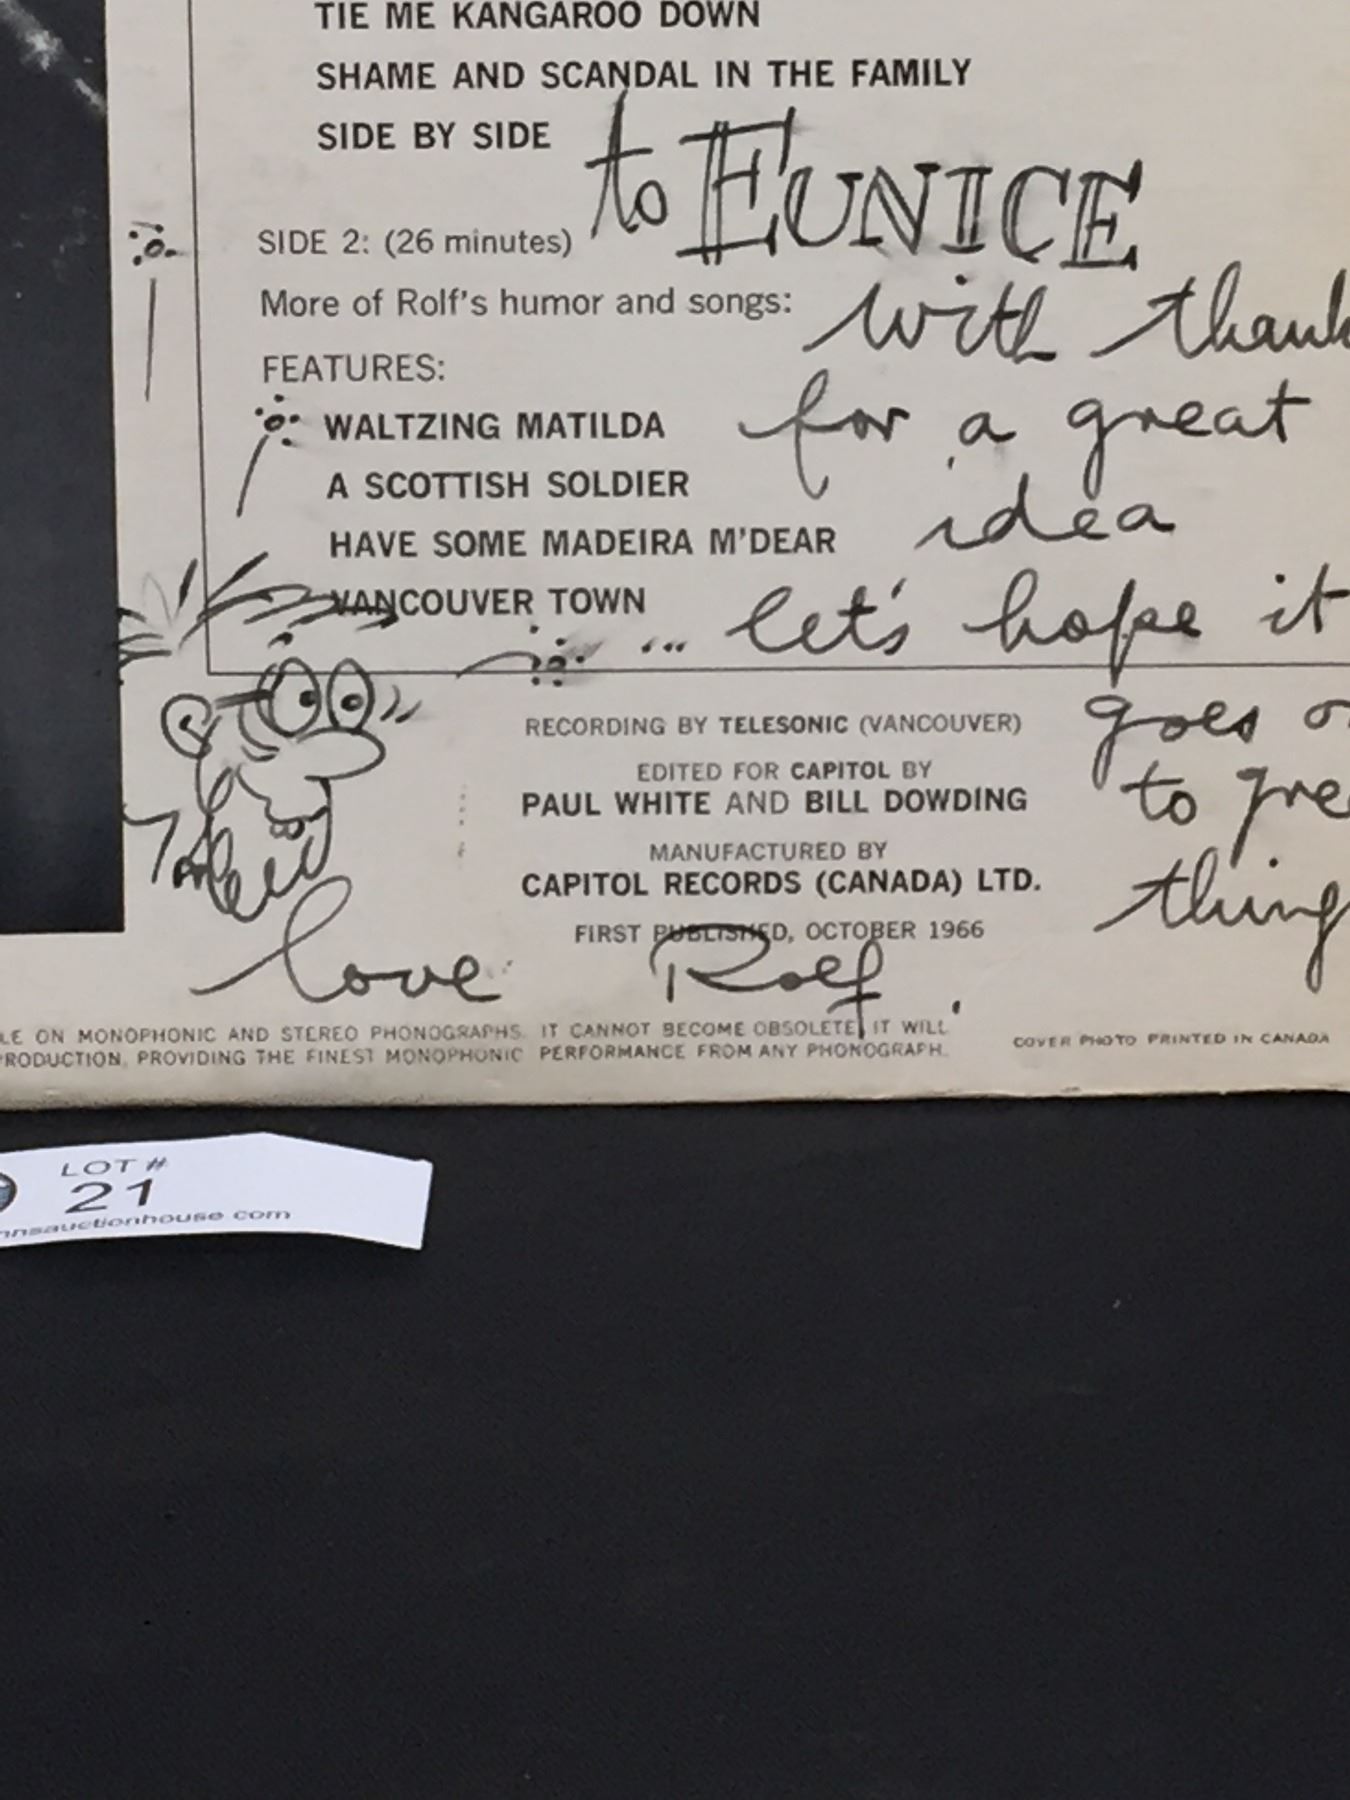 TIE ME KANGAROO DOWN
SHAME AND SCANDAL IN THE FAMILY
SIDE BY SIDE
to EUNICE
SIDE 2: (26 minutes)
More of Rolf's humor and songs:
with thank
FEATURES:
WALTZING MATILDA
for a great
A SCOTTISH SOLDIER
idea
HAVE SOME MADEIRA M'DEAR
VANCOUVER TOWN
... let's hope it
goes
RECORDING BY TELESONIC (VANCOUVER)
EDITED FOR CAPITOL BY
to gre
PAUL WHITE AND BILL DOWDING
MANUFACTURED BY
CAPITOL RECORDS (CANADA) LTD.
thing
FIRST PUBLISHED, OCTOBER 1966
love Rolf.
LE ON MONOPHONIC AND STEREO PHONOGRAPHS. IT CANNOT BECOME OBSOLETE, IT WILL
RODUCTION, PROVIDING THE FINEST MONOPHONIC PERFORMANCE FROM ANY PHONOGRAPH.
COVER PHOTO PRINTED IN CANADA
LOT #
21
nnsauctionhouse.com